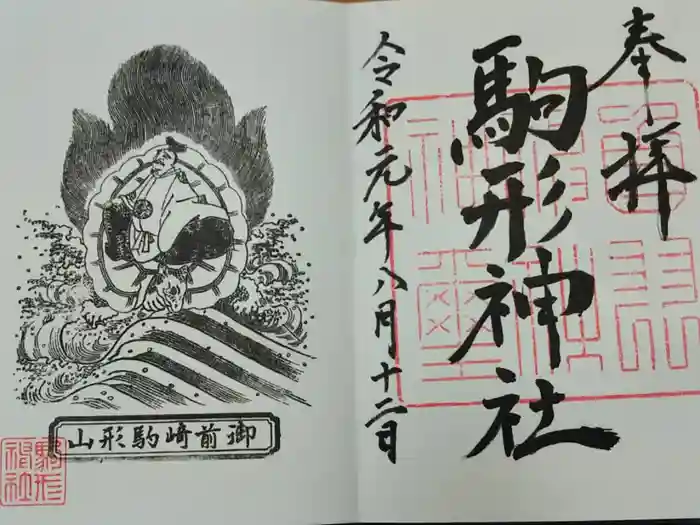 奉拝
駒形神社
令和元年八月十二日
御前崎駒形山
駒形
神社